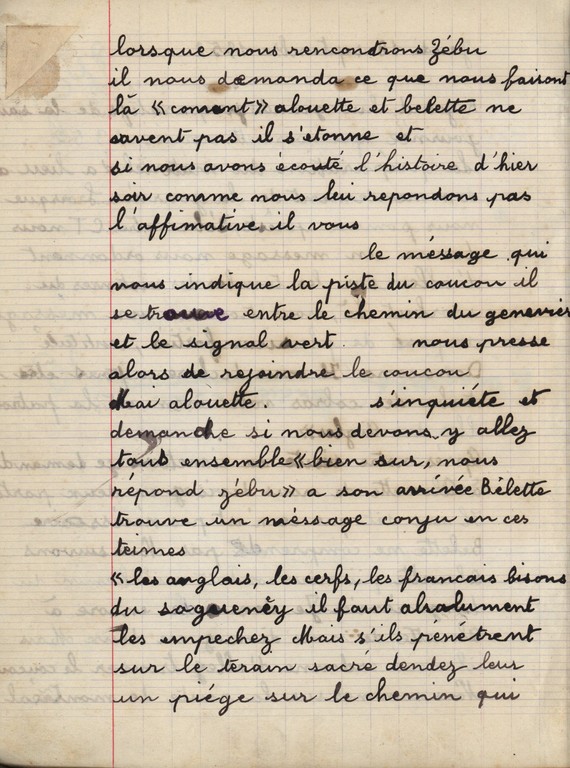 lorsque nous rencondrons Zébu
il nous demanda ce que nous faisont
là « coment » alouette et belette ne
savent pas il s'etonne et
si nous avons écouté l'histoire d'hier
soir comme nous lui repondons pas
l'affimative il vous
le méssage qui
nous indique la piste du coucou il
se trouve entre le chemin du genevrier
et le signal vert. nous presse
alors de rejoindre le coucou
Mai alouette. s'inquiéte et
demande si nous devons y allez
tous ensemble « bien sur, nous
répond zébu » a son arrivée Bélette
trouve un méssage conju en ces
teimes
« les anglais, les cerfs, les francais bisons
du saguenéy il faut absalument
les empechez Mais s'ils pénétrent
sur le terain sacré dendez leur
un piége sur le chemin qui